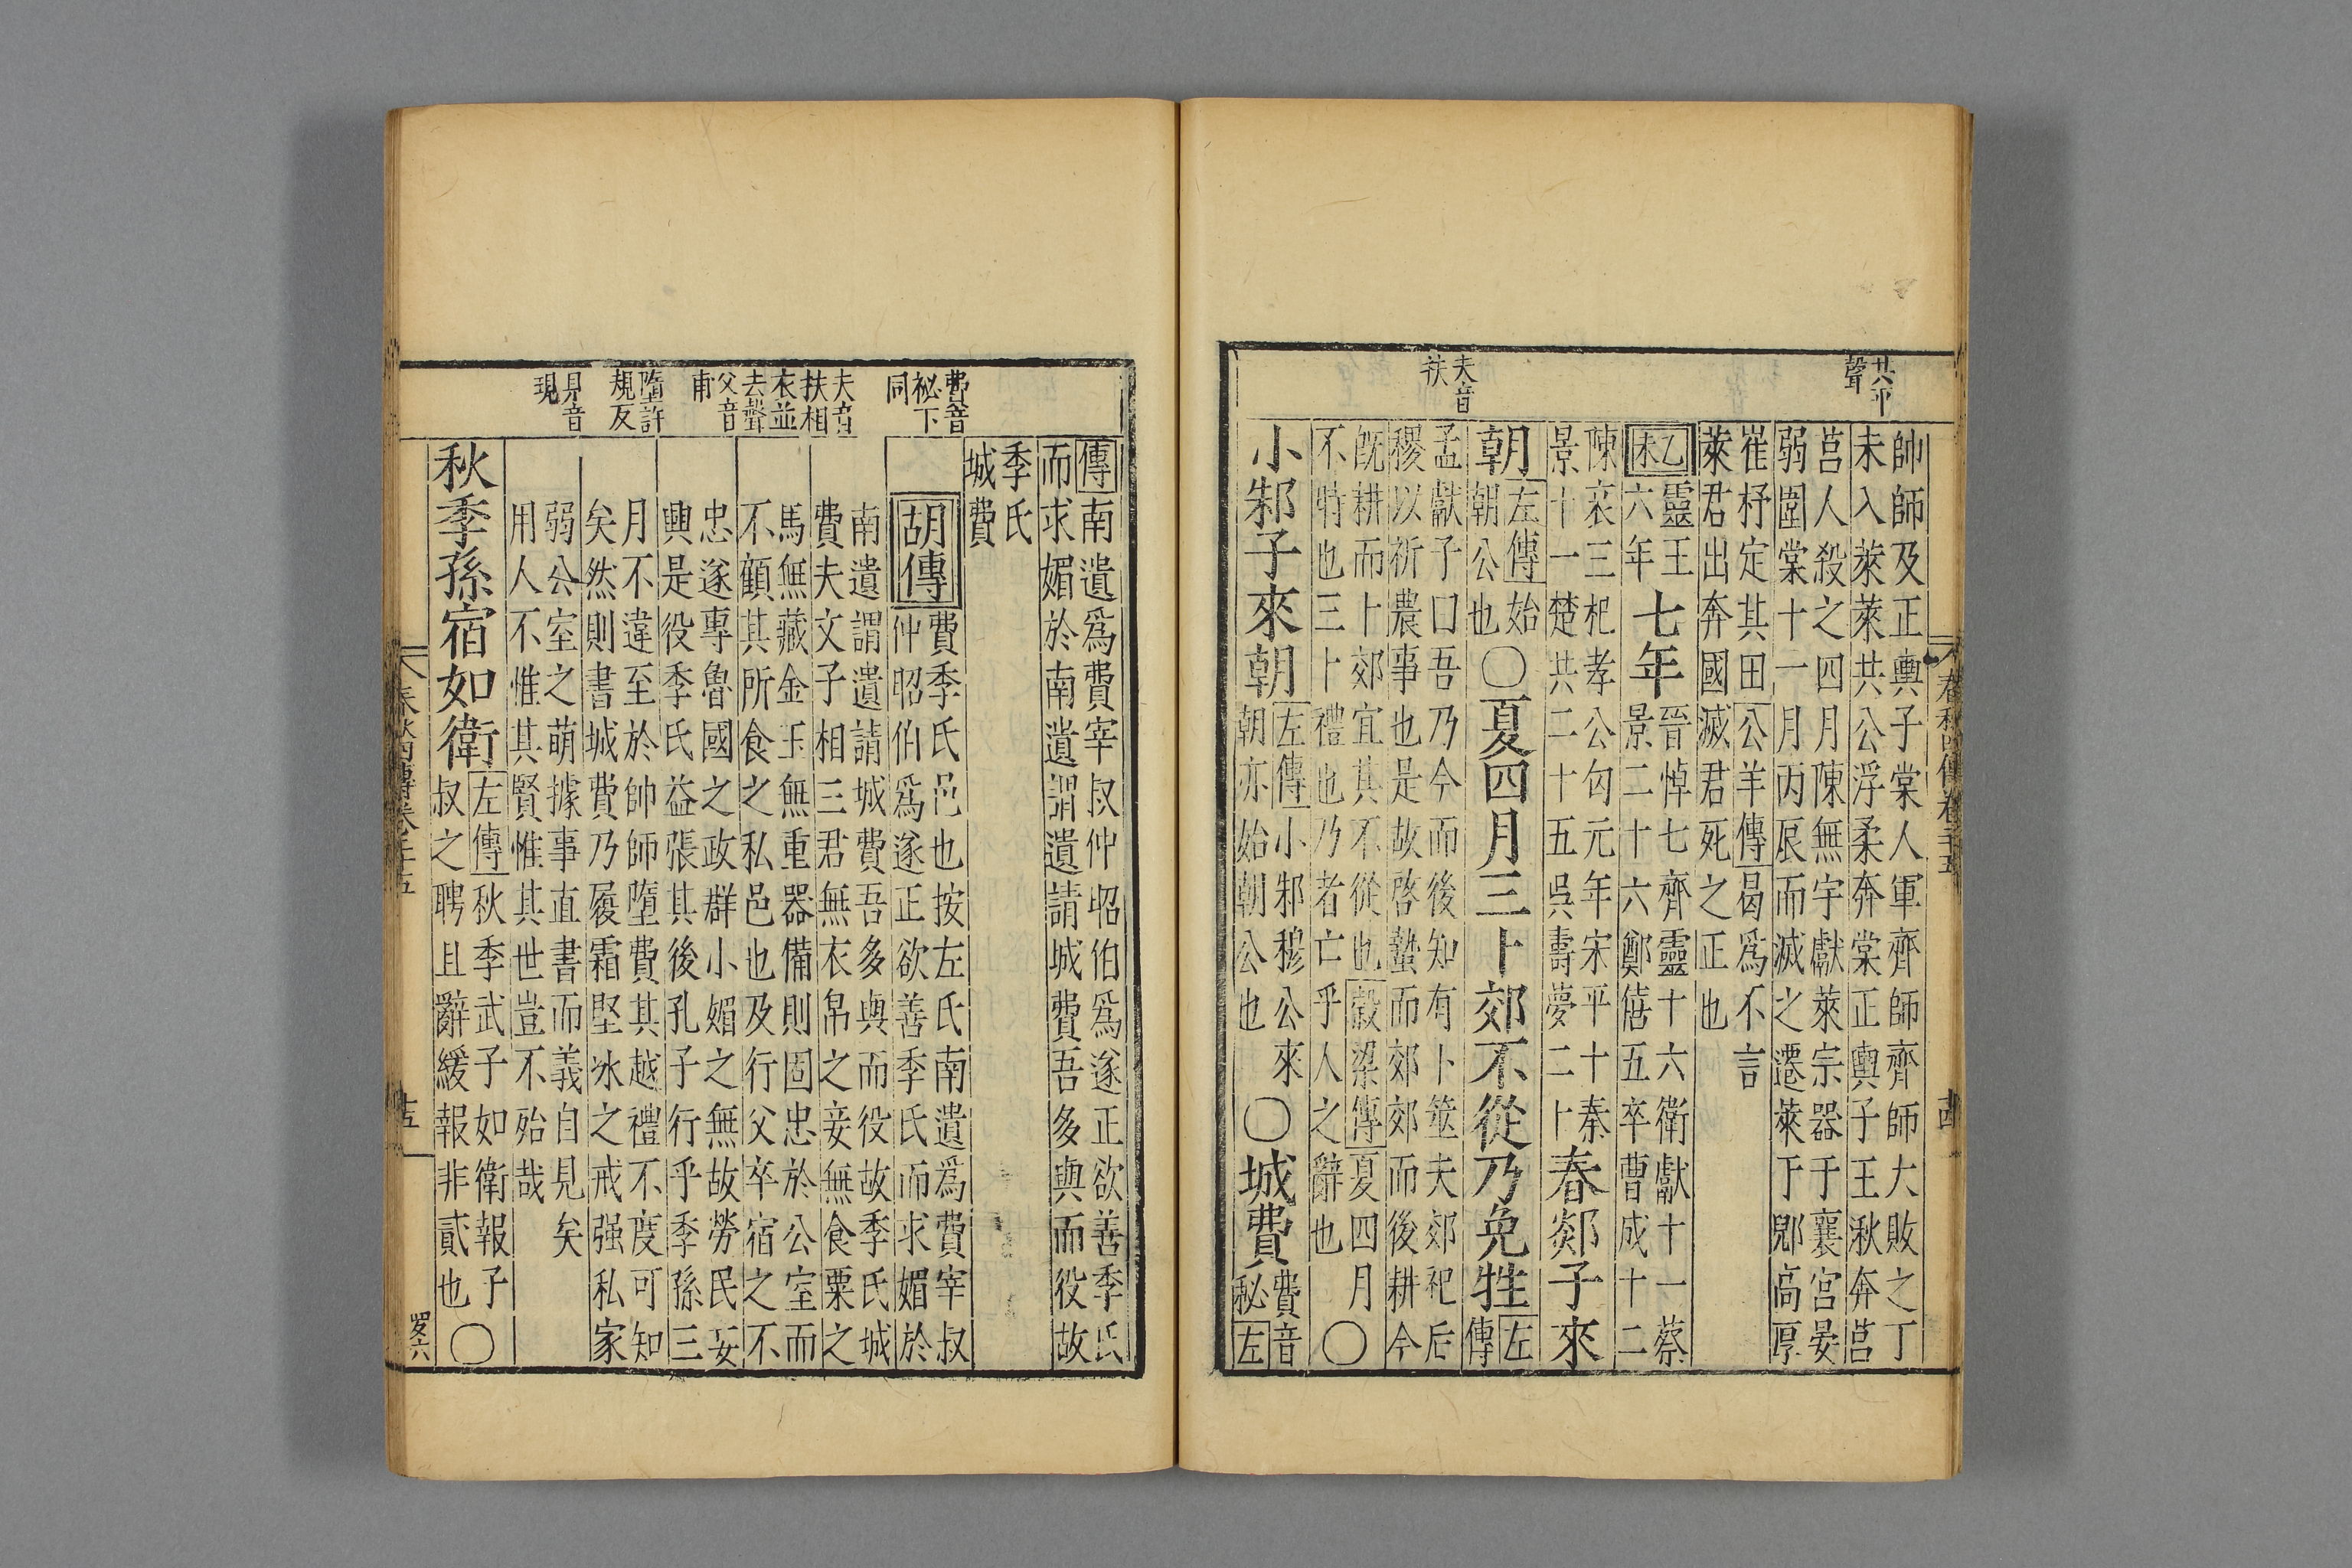 共平
聲
夫音
扶
帥師及正輿子棠人軍齊師齊師大敗之丁
未入萊萊共公浮柔奔棠正輿子王湫奔莒
莒人殺之四月陳無宇獻萊宗器于襄宮晏
弱圍棠十一月丙辰而滅之遷萊于郳高厚
崔杼定其田公羊傳曷爲不言
萊君出奔國滅君死之正也
乙未
靈王
六年
七年
晉悼七齊靈十六衛獻十一蔡
景二十六鄭僖五卒曹成十二
陳哀三杞孝公匄元年宋平十秦
景十一楚共二十五吳壽夢二十
春郯子來
朝
左傳始
朝公也
○夏四月三卜郊不從乃免牲
左
傳
孟獻子曰吾乃今而後知有卜筮夫郊祀后
稷以祈農事也是故啓蟄而郊郊而後耕今
旣耕而卜郊宜其不從也穀梁傳夏四月
不時也三卜禮也乃者亡乎人之辭也
○
小邾子來朝
左傳小邾穆公來
朝亦始朝公也
○城費
費音
秘左
春秋四傳卷二十五
十四
費音
秘下
同
夫音
扶相
衣並
去聲
父音
甫
墮許
規反
見音
現
傳南遺爲費宰叔仲昭伯爲遂正欲善季氏
而求媚於南遺謂遺請城費吾多與而役故
季氏
城費
胡傳
費季氏邑也按左氏南遺爲費宰叔
仲昭伯爲遂正欲善季氏而求媚於
南遺謂遺請城費吾多與而役故季氏城
費夫文子相三君無衣帛之妾無食粟之
馬無藏金玉無重器備則固忠於公室而
不顧其所食之私邑也及行父卒宿之不
忠遂專魯國之政群小媚之無故勞民妄
興是役季氏益張其後孔子行乎季孫三
月不違至於帥師墮費其越禮不度可知
矣然則書城費乃履霜堅冰之戒强私家
弱公室之萌據事直書而義自見矣
用人不惟其賢惟其世豈不殆哉
秋季孫宿如衛
左傳秋季武子如衛報子
叔之聘且辭緩報非貳也
○
春秋四傳卷二十五
十五